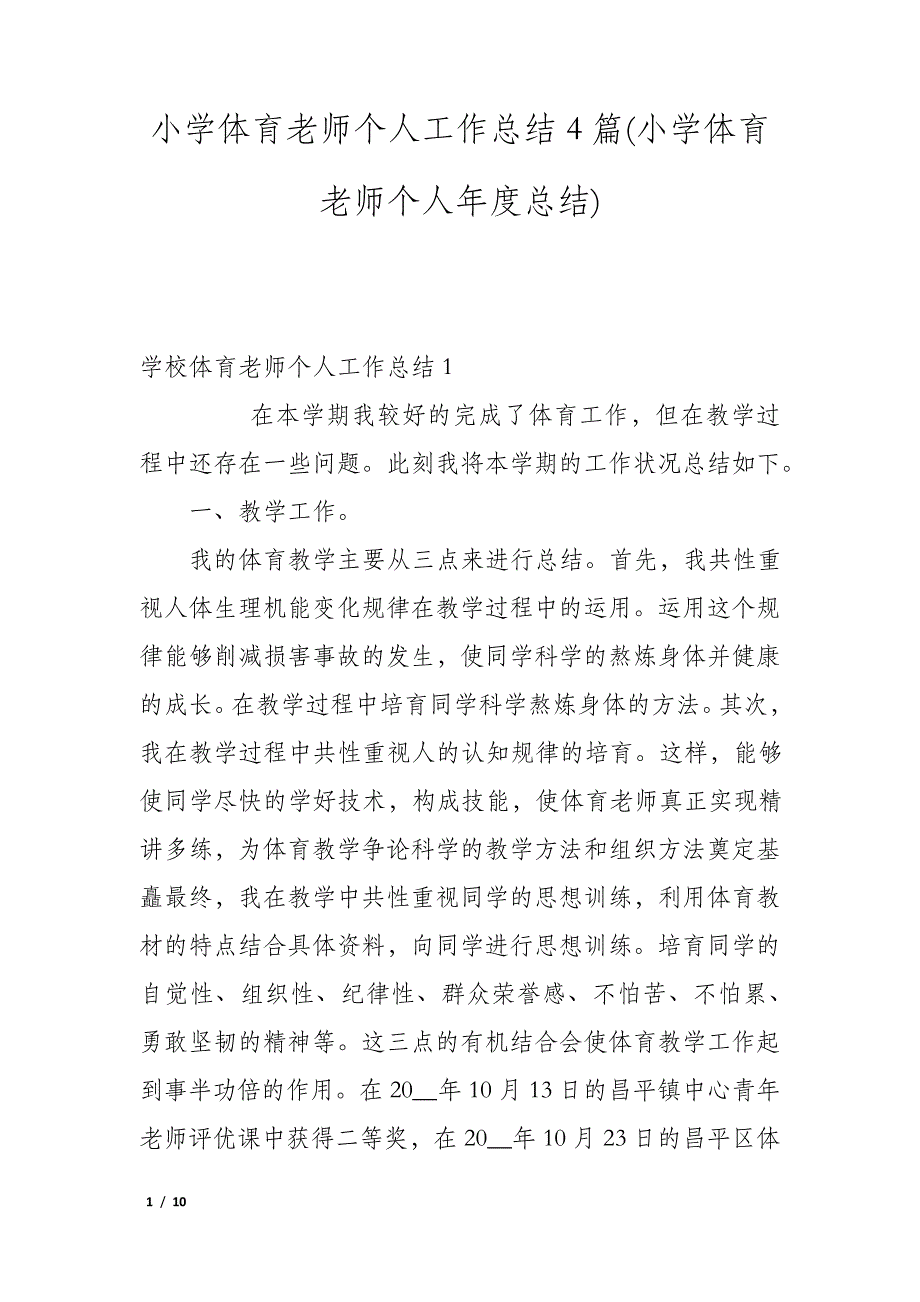 小学体育老师个人工作总结 4 篇(小学体育
老师个人年度总结)
学校体育老师个人工作总结 1
在本学期我较好的完成了体育工作，但在教学过
程中还存在一些问题。此刻我将本学期的工作状况总结如下。
一、教学工作。
我的体育教学主要从三点来进行总结。首先，我共性重
视人体生理机能变化规律在教学过程中的运用。运用这个规
律能够削减损害事故的发生，使同学科学的熬炼身体并健康
的成长。在教学过程中培育同学科学熬炼身体的方法。其次，
我在教学过程中共性重视人的认知规律的培育。这样，能够
使同学尽快的学好技术，构成技能，使体育老师真正实现精
讲多练，为体育教学争论科学的教学方法和组织方法奠定基
矗最终，我在教学中共性重视同学的思想训练，利用体育教
材的特点结合具体资料，向同学进行思想训练。培育同学的
自觉性、组织性、纪律性、群众荣誉感、不怕苦、不怕累、
勇敢坚韧的精神等。这三点的有机结合会使体育教学工作起
到事半功倍的作用。在 20__年 10 月 13 日的昌平镇中心青年
老师评优课中获得二等奖，在 20__年 10 月 23 日的昌平区体
1 / 10